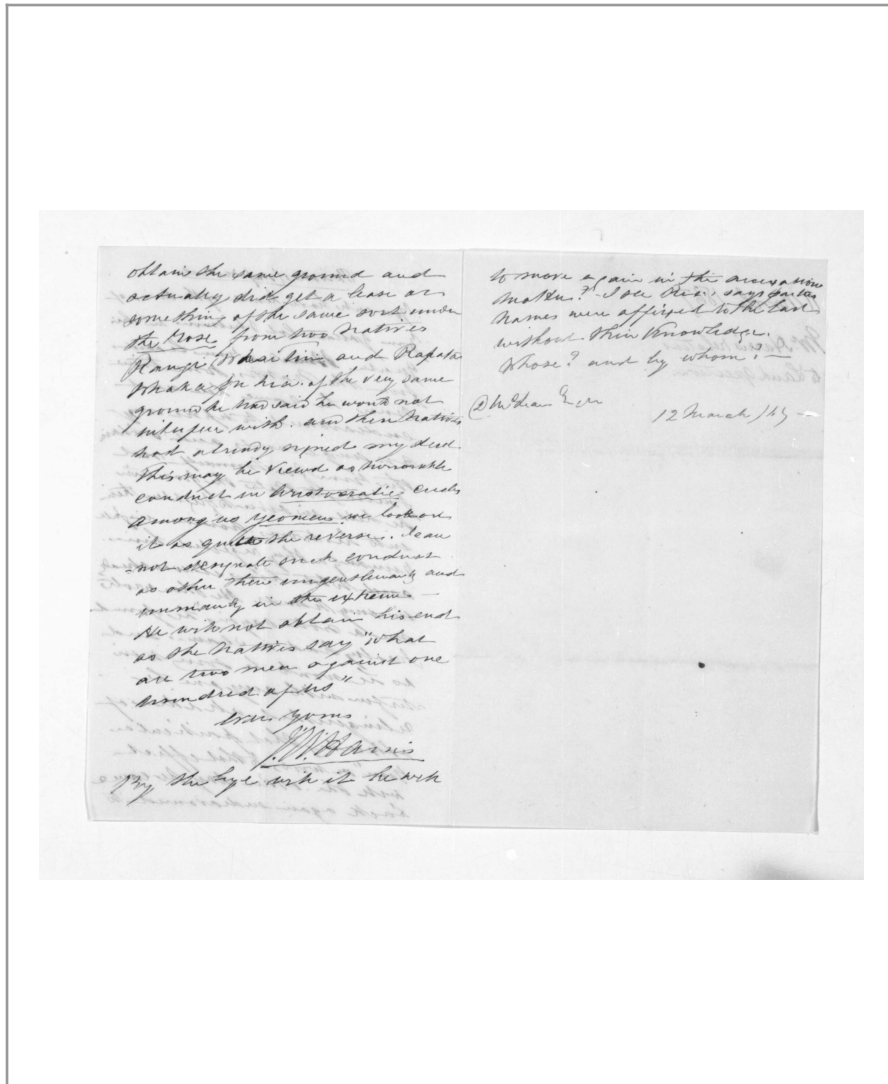 obtain the same ground and
actually did get a lease or
something of the same sort under
the Rose from two Natives
Rangi and Rapata
Whaka of the very same
ground he had said he would not
interfere with and then Natives
had already signed my deed
this may be viewed as honorable
conduct in Aristocratic circles
among us yeomen we look on
it as quite the reverse.. I can
not designate such conduct
as other than and
unmanly in the extreme —
He will not obtain his end
as the Natives say "What
are two men against one
hundred of us"
Ever yours
J. W. Harris
By the bye will it be well
to move again in the
matter? I see Rees says parties
names were affixed to the last
without their knowledge.
Whose? and by whom? —
D McLean Esqre
12 March /69 —